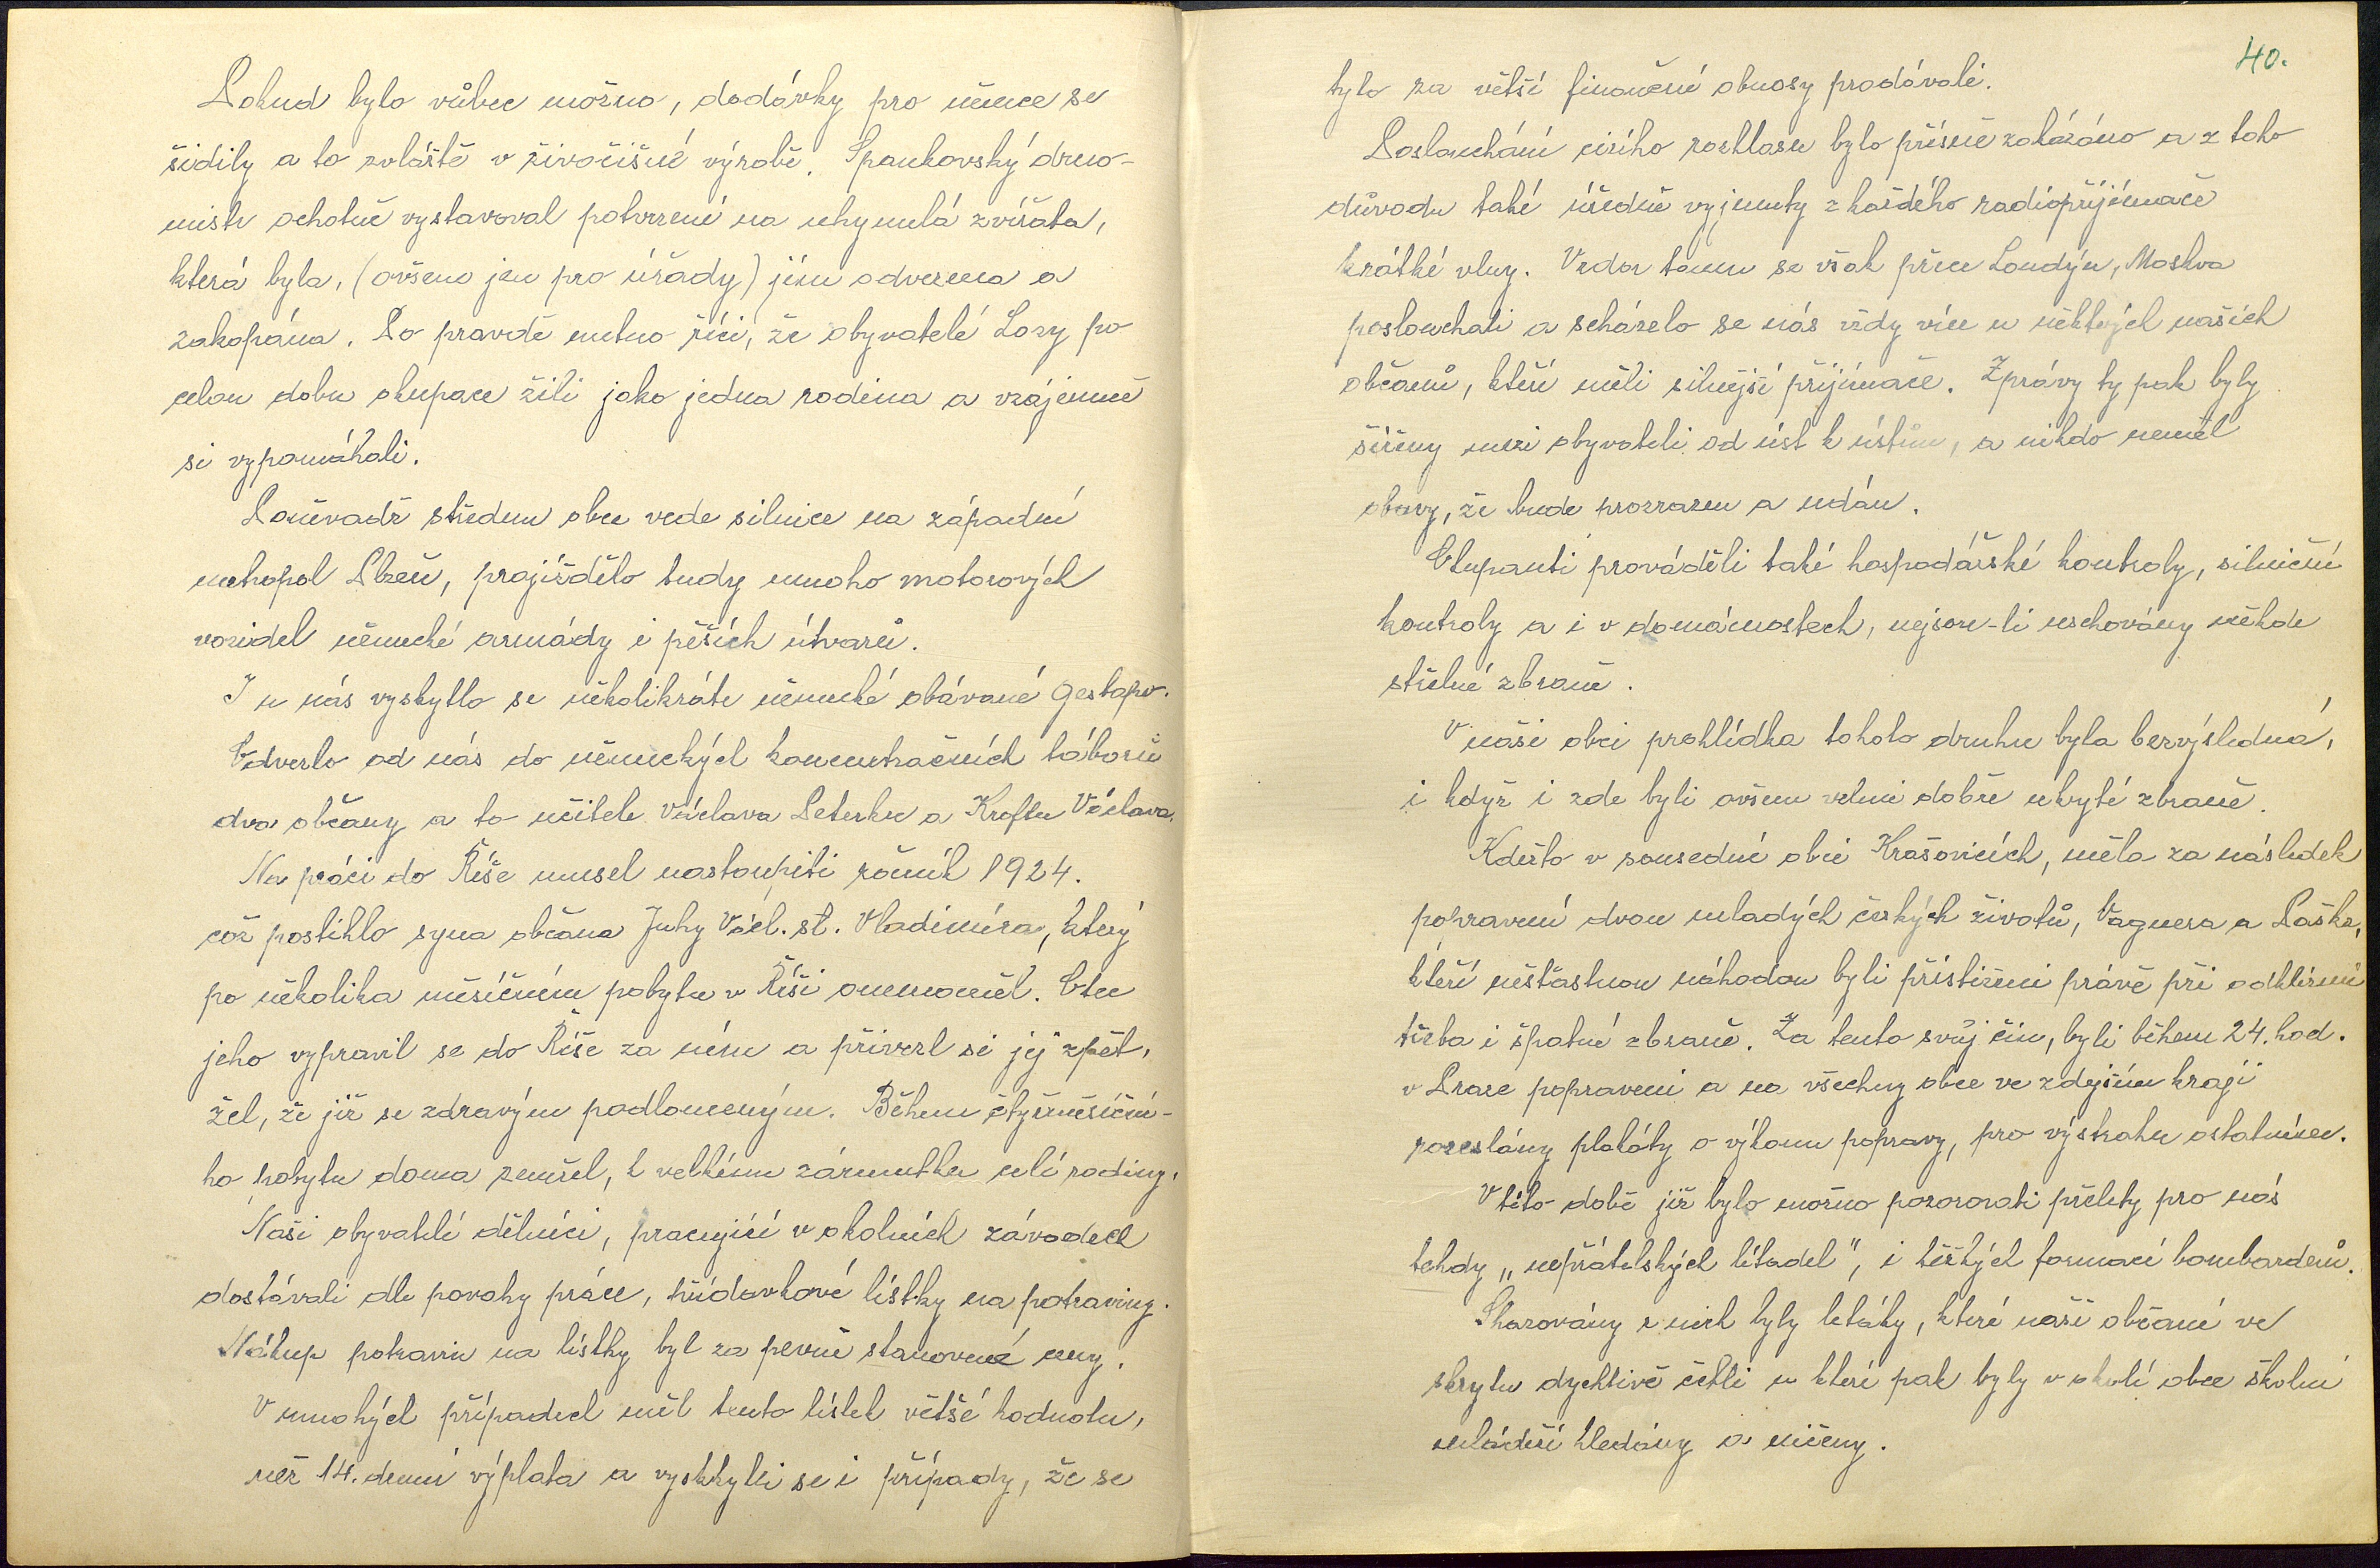 Pokud bylo vůbec možno, dodávky pro němce se
šidily a to zvláště v živočišné výrobě. Špankovský drno-
mistr ochotně vystavoval potvrzení na uhynulá zvířata,
která byla, (ovšem jen pro úřady) jím odvezena a
zakopána. Po pravdě nutno říci, že obyvatelé Lozy po
celou dobu okupace žili jako jedna rodina a vzájemně
si vypomáhali.
Poněvadž středem obce vede silnice na západní
metropol Plzeň, projíždělo tudy mnoho motorových
vozidel německé armády i pěších útvarů.
I u nás vyskytlo se několikráte německé obávané gestapo.
Odvezlo od nás do německých koncentračních táborů
dva občany a to učitele Václava Peterku a Kroftu Václava.
Na práci do Říše musel nastoupiti ročník 1924.
což postihlo syna občana Juhy Václ. st. Vladimíra, který
po několika měsíčním pobytu v Říši onemocněl. Otec
jeho vypravil se do Říše za ním a přivezl si jej zpět,
žel, že již se zdravým podlomeným. Během čtyřměsíční-
ho pobytu doma zemřel, k velkému zármutku celé rodiny.
Naši obyvatelé dělníci, pracující v okolních závodech
dostávali dle povahy práce, přídavkové lístky na potraviny.
Nákup potravin na lístky byl za pevně stanovené ceny.
V mnohých případech měl tento lístek větší hodnotu,
než 14. denní výplata a vyskytli se i případy, že se
40.
tyto za větší finanční obnosy prodávali.
Poslouchání cizího rozhlasu bylo přísně zakázáno a z toho
důvodu také úředně vyjmuty z každého radiopřijímače
krátké vlny. Vzdor tomu se však přece Londýn, Moskva
poslouchali a scházelo se nás vždy více u některých našich
občanů, kteří měli silnější přijímače. Zprávy ty pak byly
šířeny mezi obyvateli od úst k ústům, a nikdo neměl
obavy, že bude prozrazen a udán.
Okupanti prováděli také hospodářské kontroly, silniční
kontroly a i v domácnostech, nejsou-li uschovány někde
střelné zbraně.
V naši obci prohlídka tohoto druhu byla bezvýsledná,
i když i zde byli ovšem velmi dobře ukryté zbraně.
Kdežto v sousední obci Krašovicích, měla za následek
popravení dvou mladých českých životů, Vagnera a Paška,
kteří nešťastnou náhodou byli přistiženi právě při odklízení
třeba i špatné zbraně. Za tento svůj čin, byli během 24. hod.
v Praze popraveni a na všechny obce ve zdejším kraji
rozeslány plakáty o výkonu popravy, pro výstrahu ostatním.
V této době již bylo možno pozorovati přelety pro nás
tehdy „nepřátelských letadel", i těžkých formací bombarderů.
Shazovány z nich byly letáky, které naši občané ve
skrytu dychtivě četli a které pak byly v okolí obce školní
mládeží hledány a ničeny.